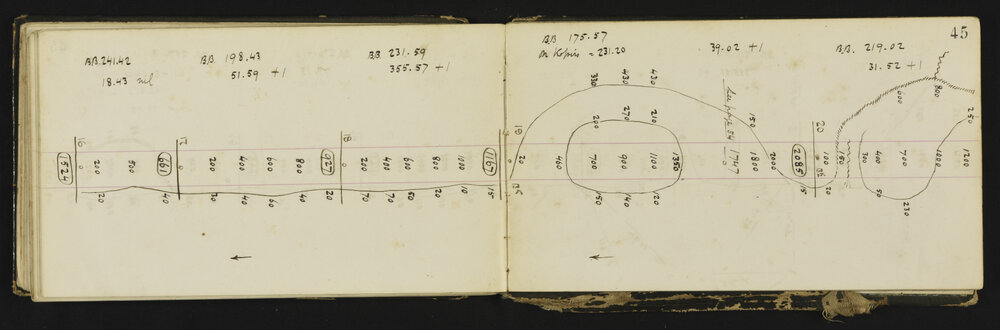 45
B.B. 241.42
18.43 nil
B.B. 198.43
51.59 +1
B.B. 231.59
355.57 +1
B.B 175.57
= 231.20
39.02 +1
B.B. 219.02
31.52 +1
16
1524
0
200
500
661
20
40
17
0
200
400
600
800
927
30
40
60
40
20
18
0
200
400
600
800
1000
1167
70
70
50
20
10
15
19
0
20
35
330
430
430
200
270
210
400
700
900
1100
1350
50
40
20
Suppse 54
1747
0
150
1800
2000
2085
15
20
0
100
20
150
300
400
700
1000
1200
600
800
250
50
230